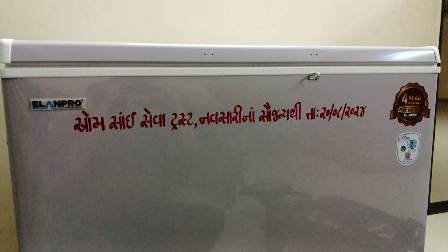 ELANPRO
ઓમ સાંઈ સેવા ટ્રસ્ટ, નવસારીનાં સૌજન્યથી તાઃ૨૦/૦૮/૨૦૨૪
4 YEAR